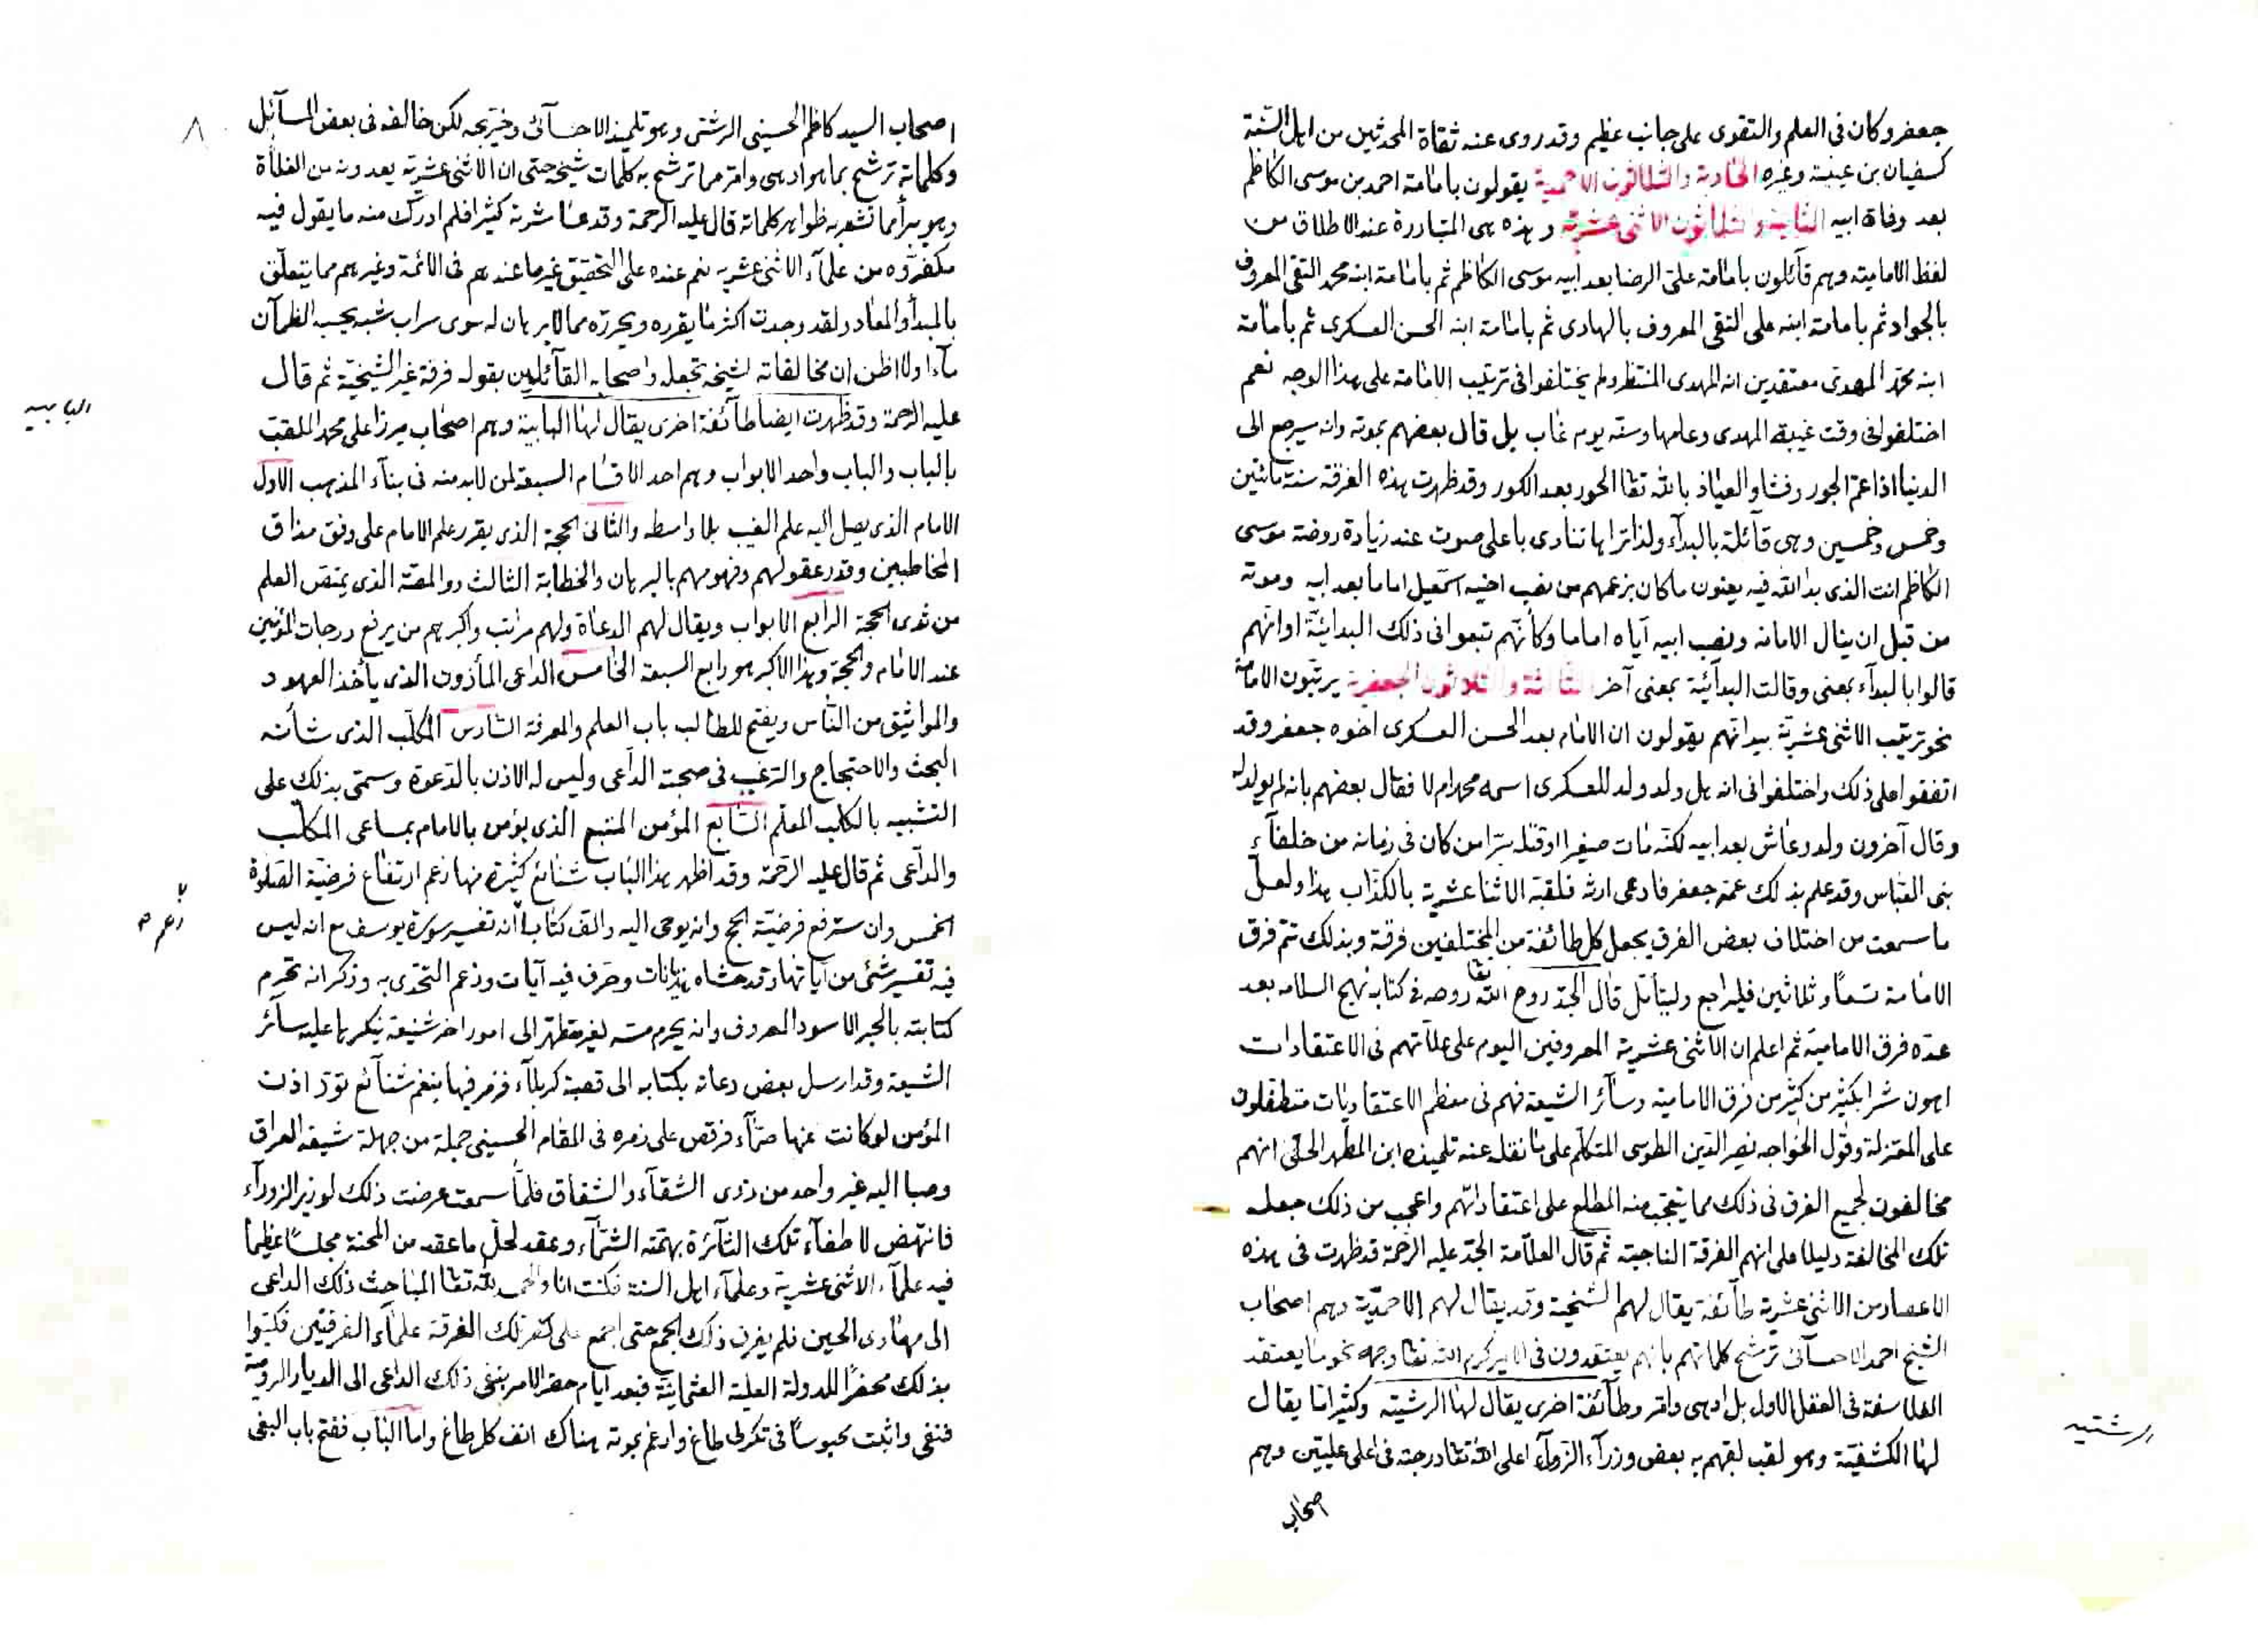 جعفر وكان فى العلم والتقوى على جانب عظيم وقد روى عنه ثقاة المحدثين من اهل السّنة
كسفيان بن عيينة وغيره الحادية والثلاثون الاحمدية يقولون بامامة احمد بن موسى الكاظم
بعد وفاة ابيه الثانية والثلاثون الاثنى عشرية وهذه هى المتبادرة عند الاطلاق من
لفظ الامامية وهم قآئلون بامامة على الرضا بعد ابيه موسى الكاظم ثم بامامة ابنه محمد التقى المعروف
بالجواد ثم بامامة ابنه على النقى المعروف بالهادى ثم بامامة ابنه الحسن العسكرى ثم بامامة
ابنه محمّد المهدى معتقدين انه المهدى المنتظر ولم يختلفوا فى ترتيب الامامة على هذا الوجه نعم
اختلفوا فى وقت غيبة المهدى وعامها وسنه يوم غاب بل قال بعضهم بموته وانه سيرجع الى
الدنيا اذا عمّ الجور وفشا والعياذ بالله تعا الحور بعد الكور وقد ظهرت هذه الفرقة سنة مائتين
وخمس وخمسين وهى قآئلة بالبدآء ولذا تراها تنادى باعلى صوت عند زيارة روضة موسى
الكاظم انت الذى بدا الله فيه يعنون ما كان بزعمهم من نصب اخيه اسمعيل اماما بعد ابيه وموته
من قبل ان ينال الامامة ونصب ابيه اياه اماما وكأنهم تبعوا فى ذلك البدائيّة اوانهم
قالوا بالبدآء بمعنى وقالت البدآئيّة بمعنى آخر الثالثة والثلاثون الجعفرية يرتّبون الامامة
نحو ترتيب الاثنى عشريّة بيد انهم يقولون ان الامام بعد الحسن العسكرى اخوه جعفر وقد
اتفقوا على ذلك واختلفوا فى انه هل ولد ولد للعسكرى اسمه محمد ام لا فقال بعضهم بانه لم يولد له
وقال آخرون ولد وعاش بعد ابيه لكنّه مات صغيرا او قتله سرّا من كان فى زمانه من خلفآء
بنى العباس وقد علم بذلك عمّه جعفر فادعى ارثه فلقبه الاثنا عشرية بالكذّاب هذا ولعل
ما سمعت من اختلاف بعض الفرق يجعل كل طائفة من المختلفين فرقة وبذلك تتم فرق
الامامة تسعًا وثلاثين فليراجع وليتأمل قال الجدّ روح الله تعا روحه فى كتابه نهج السلامه بعد
عدّه فرق الامامية ثم اعلم ان الاثنى عشرية المعروفين اليوم على علّاتهم فى الاعتقادات
اهون شرا بكثير من كثير من فرق الامامية وسآئر الشيعة فهم فى معظم الاعتقاديات متطفلون
على المعتزلة وقول الخواجه نصير الدّين الطوسى المتكلّم على ما نقله عنه تلميذه ابن المطهر الحلّى انهم
مخالفون لجميع الفرق فى ذلك مما يتعجّب منه المطلع على اعتقاداتهم واعجب من ذلك جعله
تلك المخالفة دليلا على انهم الفرقة الناجية ثم قال العلّامة الجدّ عليه الرّحمة قد ظهرت فى هذه
الاعصار من الاثنى عشرية طآئفة يقال لهم الشيخية وقد يقال لهم الاحمديّة وهم اصحاب
الشيخ احمد الاحسآئى ترشح كلماتهم بانهم يعتقدون فى الامير كرم الله تعا وجهه نحو ما يعتقد
الفلاسفة فى العقل الاول بل ادهى وامّر وطآئفة اخرى يقال لها الرشتية وكثيرا ما يقال
لها الكشفيّة وهو لقب لقبهم به بعض وزرآء الزّورآء اعلى الله تعا درجته فى اعلى عليّين وهم
اصحاب
الرشتيه
٨
اصحاب السيد كاظم الحسينى الرشتى وهو تلميذ الاحسآئى وخريجه لكن خالفه فى بعض المسآئل
وكلماته ترشح بما هو ادهى وامّر مما ترشح به كلمات شيخه حتى ان الاثنى عشرية يعدونه من الغلاة
وهو يبرأ مما تشعر به ظواهر كلماته قال عليه الرحمة وقد عاشرته كثيرا فلم ادرك منه ما يقول فيه
مكفّروه من علمآء الاثنى عشريه نعم عنده على التحقيق غير ما عندهم فى الائمة وغيرهم مما يتعلّق
بالمبدأ والمعاد ولقد وجدت اكثر ما يقرره ويحرره مما لا برهان له سوى سراب شبه يحسبه الظمآن
مآء ولا اظن ان مخالفاته لشيخه تجعله واصحابه القآئلين بقوله فرقة غير الشيخيّة ثم قال
عليه الرحمة وقد ظهرت ايضا طآئفة اخرى يقال لها البابية وهم اصحاب ميرزا على محمد الملقب
بالباب والباب واحد الابواب وهم احد الاقسام السبعة لمن لابد منه فى بنآء المذهب الاول
الامام الذى يصل اليه علم الغيب بلا واسطه والثانى الحجة الذى يقرر علم الامام على وفق مذاق
المخاطبين وقدر عقولهم وفهومهم بالبرهان والخطابة الثالث ذو المصّة الذى يمتص العلم
من ثدى الحجة الرابع الابواب ويقال لهم الدعاة ولهم مراتب واكبرهم من يرفع درجات المؤمنين
عند الامام والحجة وهذا الاكبر هو رابع السبعة الخامس الداعى المأذون الذى يأخذ العهود
والمواثيق من النّاس ويفتح للطالب باب العلم والمعرفة السّادس المكلّب الذى شأنه
البحث والاحتجاج والترغيب فى صحبة الدّاعى وليس له الاذن بالدّعوة وسمّى بذلك على
التشبيه بالكلب المعلّم السّابع المؤمن المتبع الذى يؤمن بالامام بمساعى المكلّب
والدّاعى ثم قال عليه الرّحمة وقد اظهر هذا الباب شنائع كثيرة منها زعم ارتفاع فرضيّة الصّلوة
الخمس وان سترفع فرضيّة الحج وانه يوحى اليه والف كتابا انه تفسير سورة يوسف مع انه ليس
فيه تفسير شئ من آياتها وقد حشاه هذيانات وحرّف فيه آيات وزعم التحدّى به وذكر انه تحرم
كتابته بالحبر الاسود المعروف وانه يحرم مسه لغير متطهر الى امور اخر شنيعة ينكرها عليه سآئر
الشيعة وقد ارسل بعض دعاته بكتابه الى قصبة كربلآء فزمر فيها بنغم شنآئع تودّ اذن
المؤمن لو كانت عنها صمّآء فرقص على زمره فى المقام الحسينى جملة من جهلة شيعة العراق
وصبا اليه غير واحد من ذوى الشقآء والشقاق فلمّا سمعت عرضت ذلك لوزير الزورآء
فانتهض لاطفآء تلك النّآئرة بهمّته الشّمّآء وعقد لحلّ ما عقد من المحنة مجلسًا عظيما
فيه علمآء الاثنى عشريّة وعلمآء اهل السنة فكنت انا والحمد لله تعا المباحث ذلك الداعى
الى مهاوى الحين فلم يفرق ذلك الجمع حتى اجمع على كفر تلك الفرقة علمآء الفرقتين فكتبوا
بذلك محضرًا للدولة العلية العثمانيّة فبعد ايام حضر الامر بنفى ذلك الداعى الى الديار الروميّة
فنفى واثبت محبوسًا فى تكرلى طاغ وارغم بموته هناك انف كل طاغ واما الباب ففتح باب البغى
البابيه
زعم